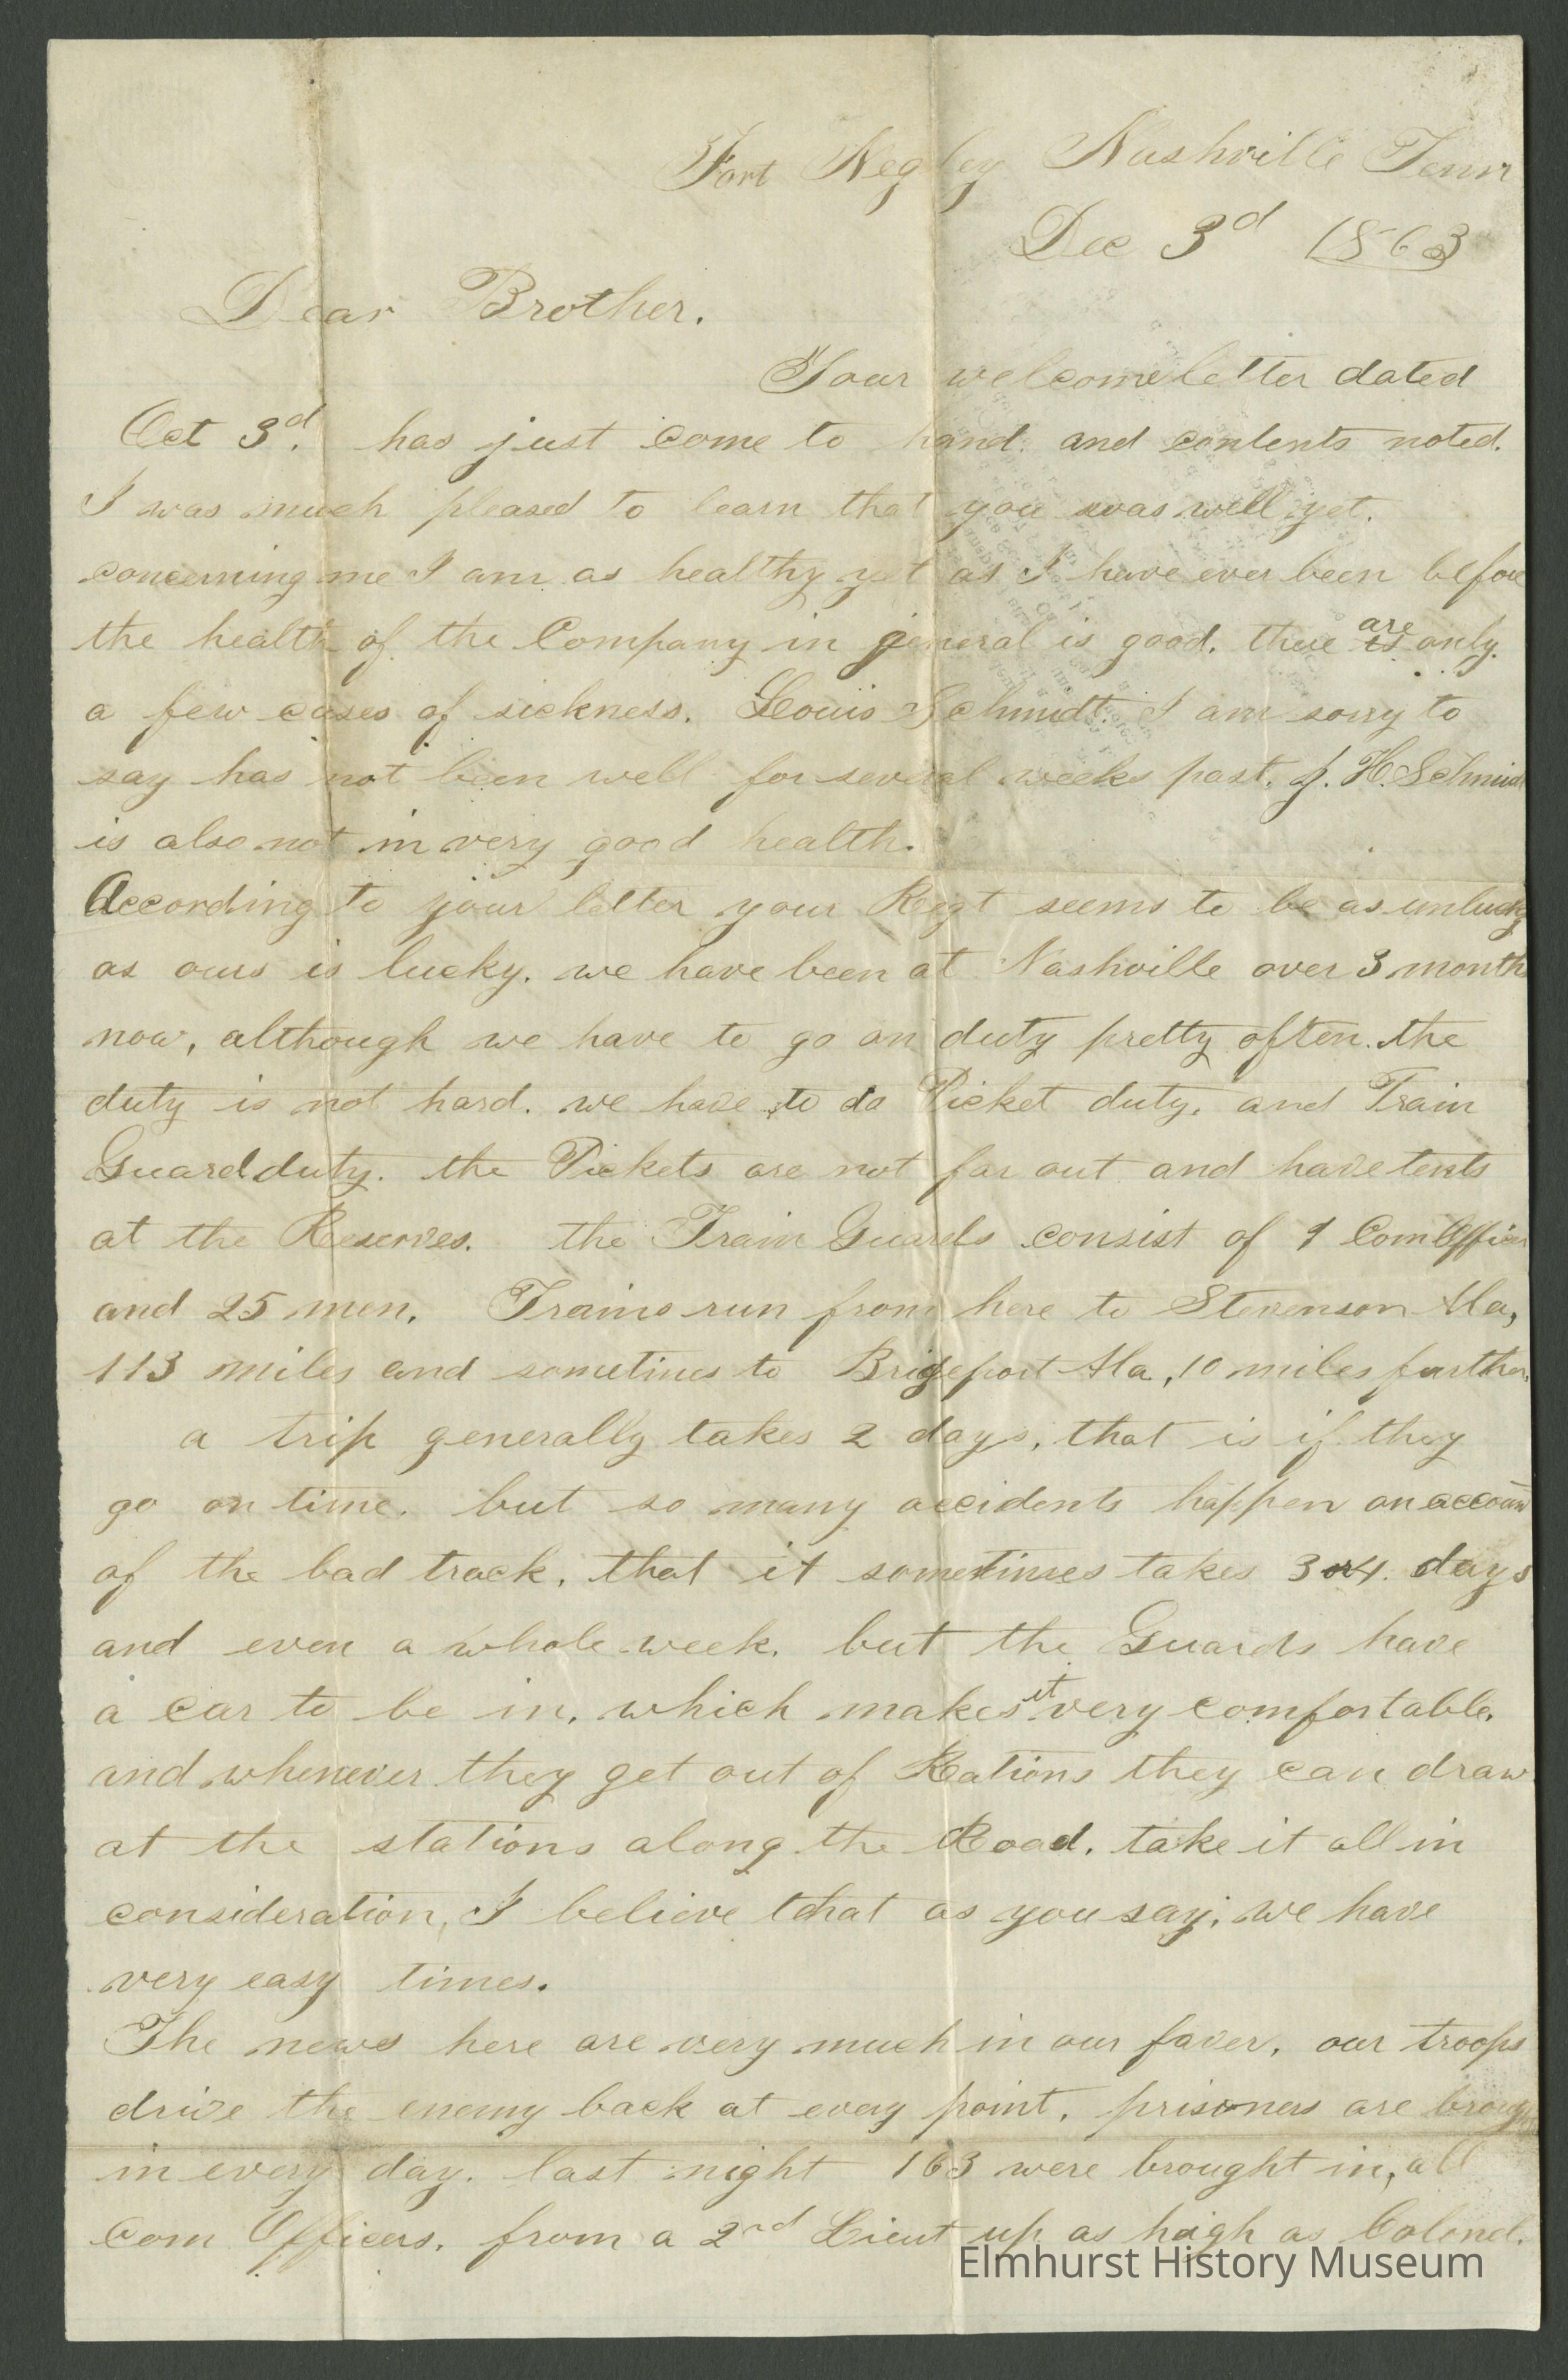 Fort Negley Nashville Tenn
Dec 3d 1863
Dear Brother.
Your welcome letter dated
Oct 3d. has just come to hand. and contents noted.
I was much pleased to learn that you was well yet.
concerning me I am as healthy yet as I have ever been before
the health of the Company in general is good. there are is only
a few cases of sickness. Louis Schmidt. I am sorry to
say has not been well for several weeks past. J. H. Schmidt
is also not in very good health.
According to your letter your Regt seems to be as unlucky
as ours is lucky. we have been at Nashville over 3 months
now, although we have to go on duty pretty often. the
duty is not hard. we have to do Picket duty. and Train
Guard duty. the Pickets are not far out and have tents
at the Reserves. the Train Guards consist of 1 Com Officer
and 25 men. Trains run from here to Stevenson Ala,
113 miles and sometimes to Brigeport Ala, 10 miles further,
a trip generally takes 2 days, that is if they
go on time. but so many accidents happen on account
of the bad track, that it sometimes takes 3 or 4. days
and even a whole week. but the Guards have
a car to be in, which makes it very comfortable.
and whenever they get out of Rations they can draw
at the stations along the Road. take it all in
consideration, I believe that as you say, we have
very easy times.
The news here are very much in our faver, our troops
drive the enemy back at every point, prisoners are brought
in every day. last night 163 were brought in, all
Com Officers, from a 2nd Lieut up as heigh as Colonel.
Elmhurst History Museum